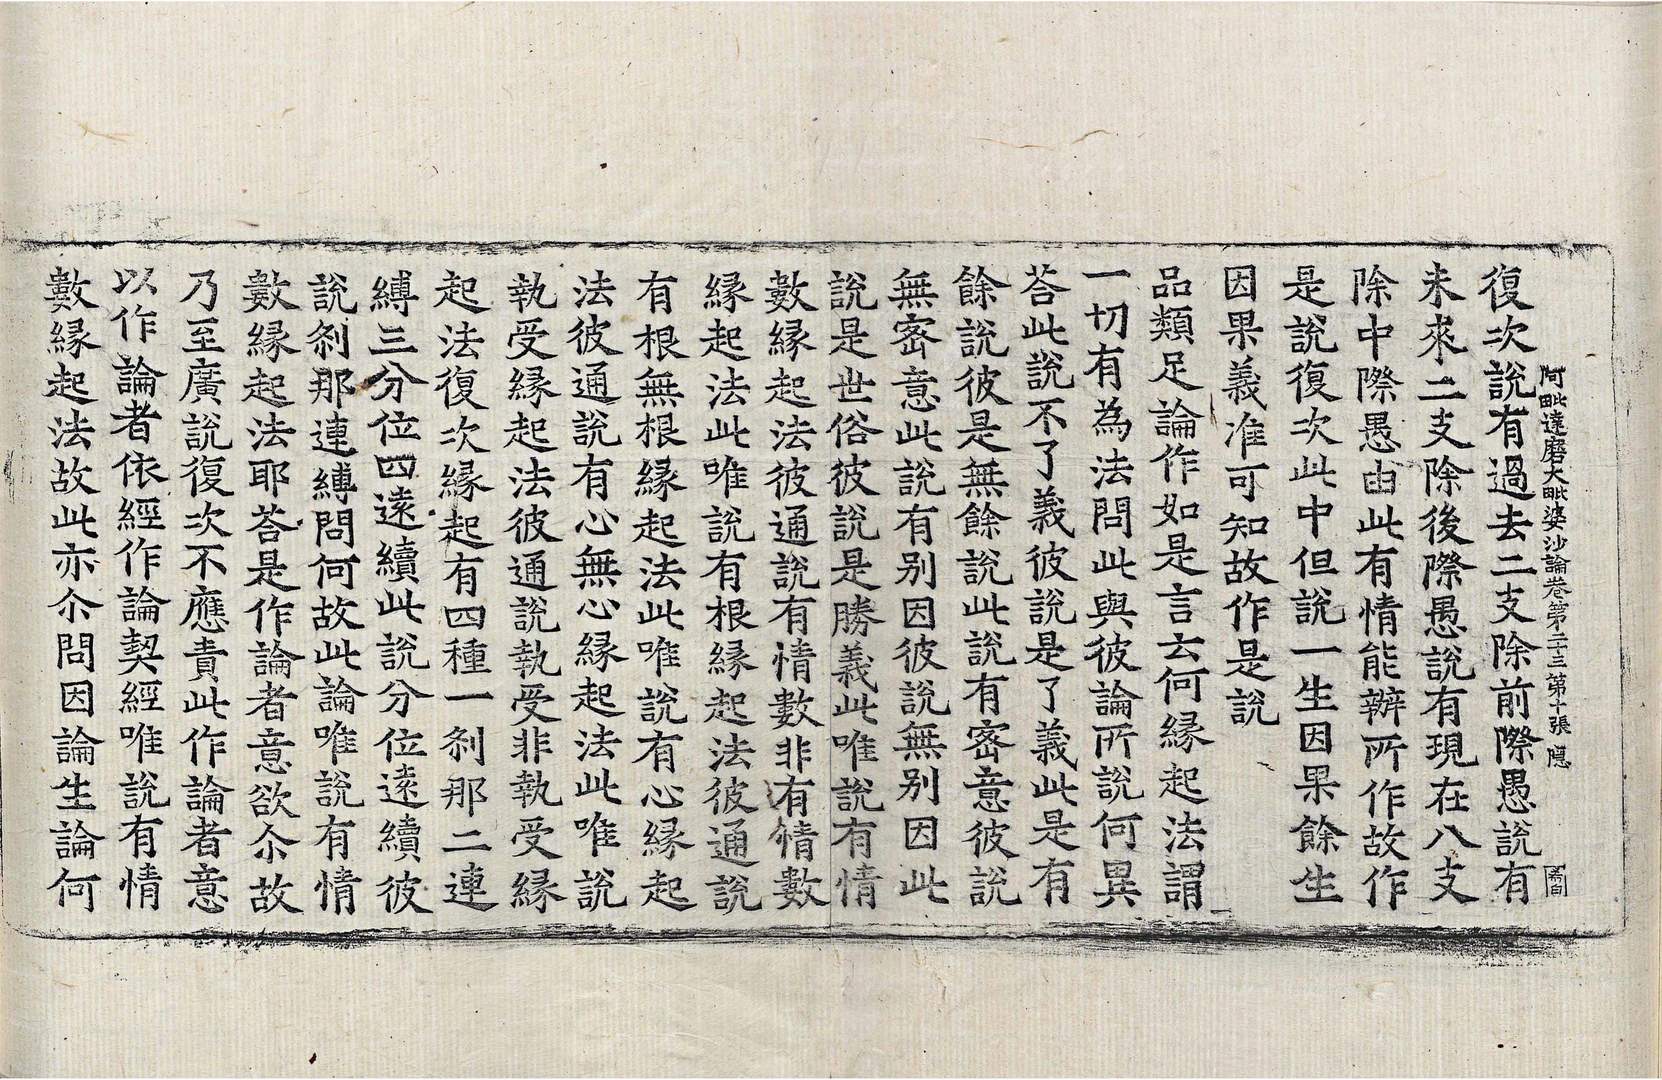 阿毗達磨大毗婆沙論卷第二十三第十張 隱
復次說有過去二支除前際愚說有
未來二支除後際愚說有現在八支
除中際愚由此有情能辦所作故作
是說復次此中但說一生因果餘生
因果義准可知故作是說
品類足論作如是言云何緣起法謂
一切有為法問此與彼論所說何異
荅此說不了義彼說是了義此是有
餘說彼是無餘說此說有密意彼說
無密意此說有別因彼說無別因此
說是世俗彼說是勝義此唯說有情
數緣起法彼通說有情數非有情數
緣起法此唯說有根緣起法彼通說
有根無根緣起法此唯說有心緣起
法彼通說有心無心緣起法此唯說
執受緣起法彼通說執受非執受緣
起法復次緣起有四種一刹那二連
縛三分位四遠續此說分位遠續彼
說刹那連縛問何故此論唯說有情
數緣起法耶荅是作論者意欲尒故
乃至廣說復次不應責此作論者意
以作論者依經作論契經唯說有情
數緣起法故此亦尒問因論生論何